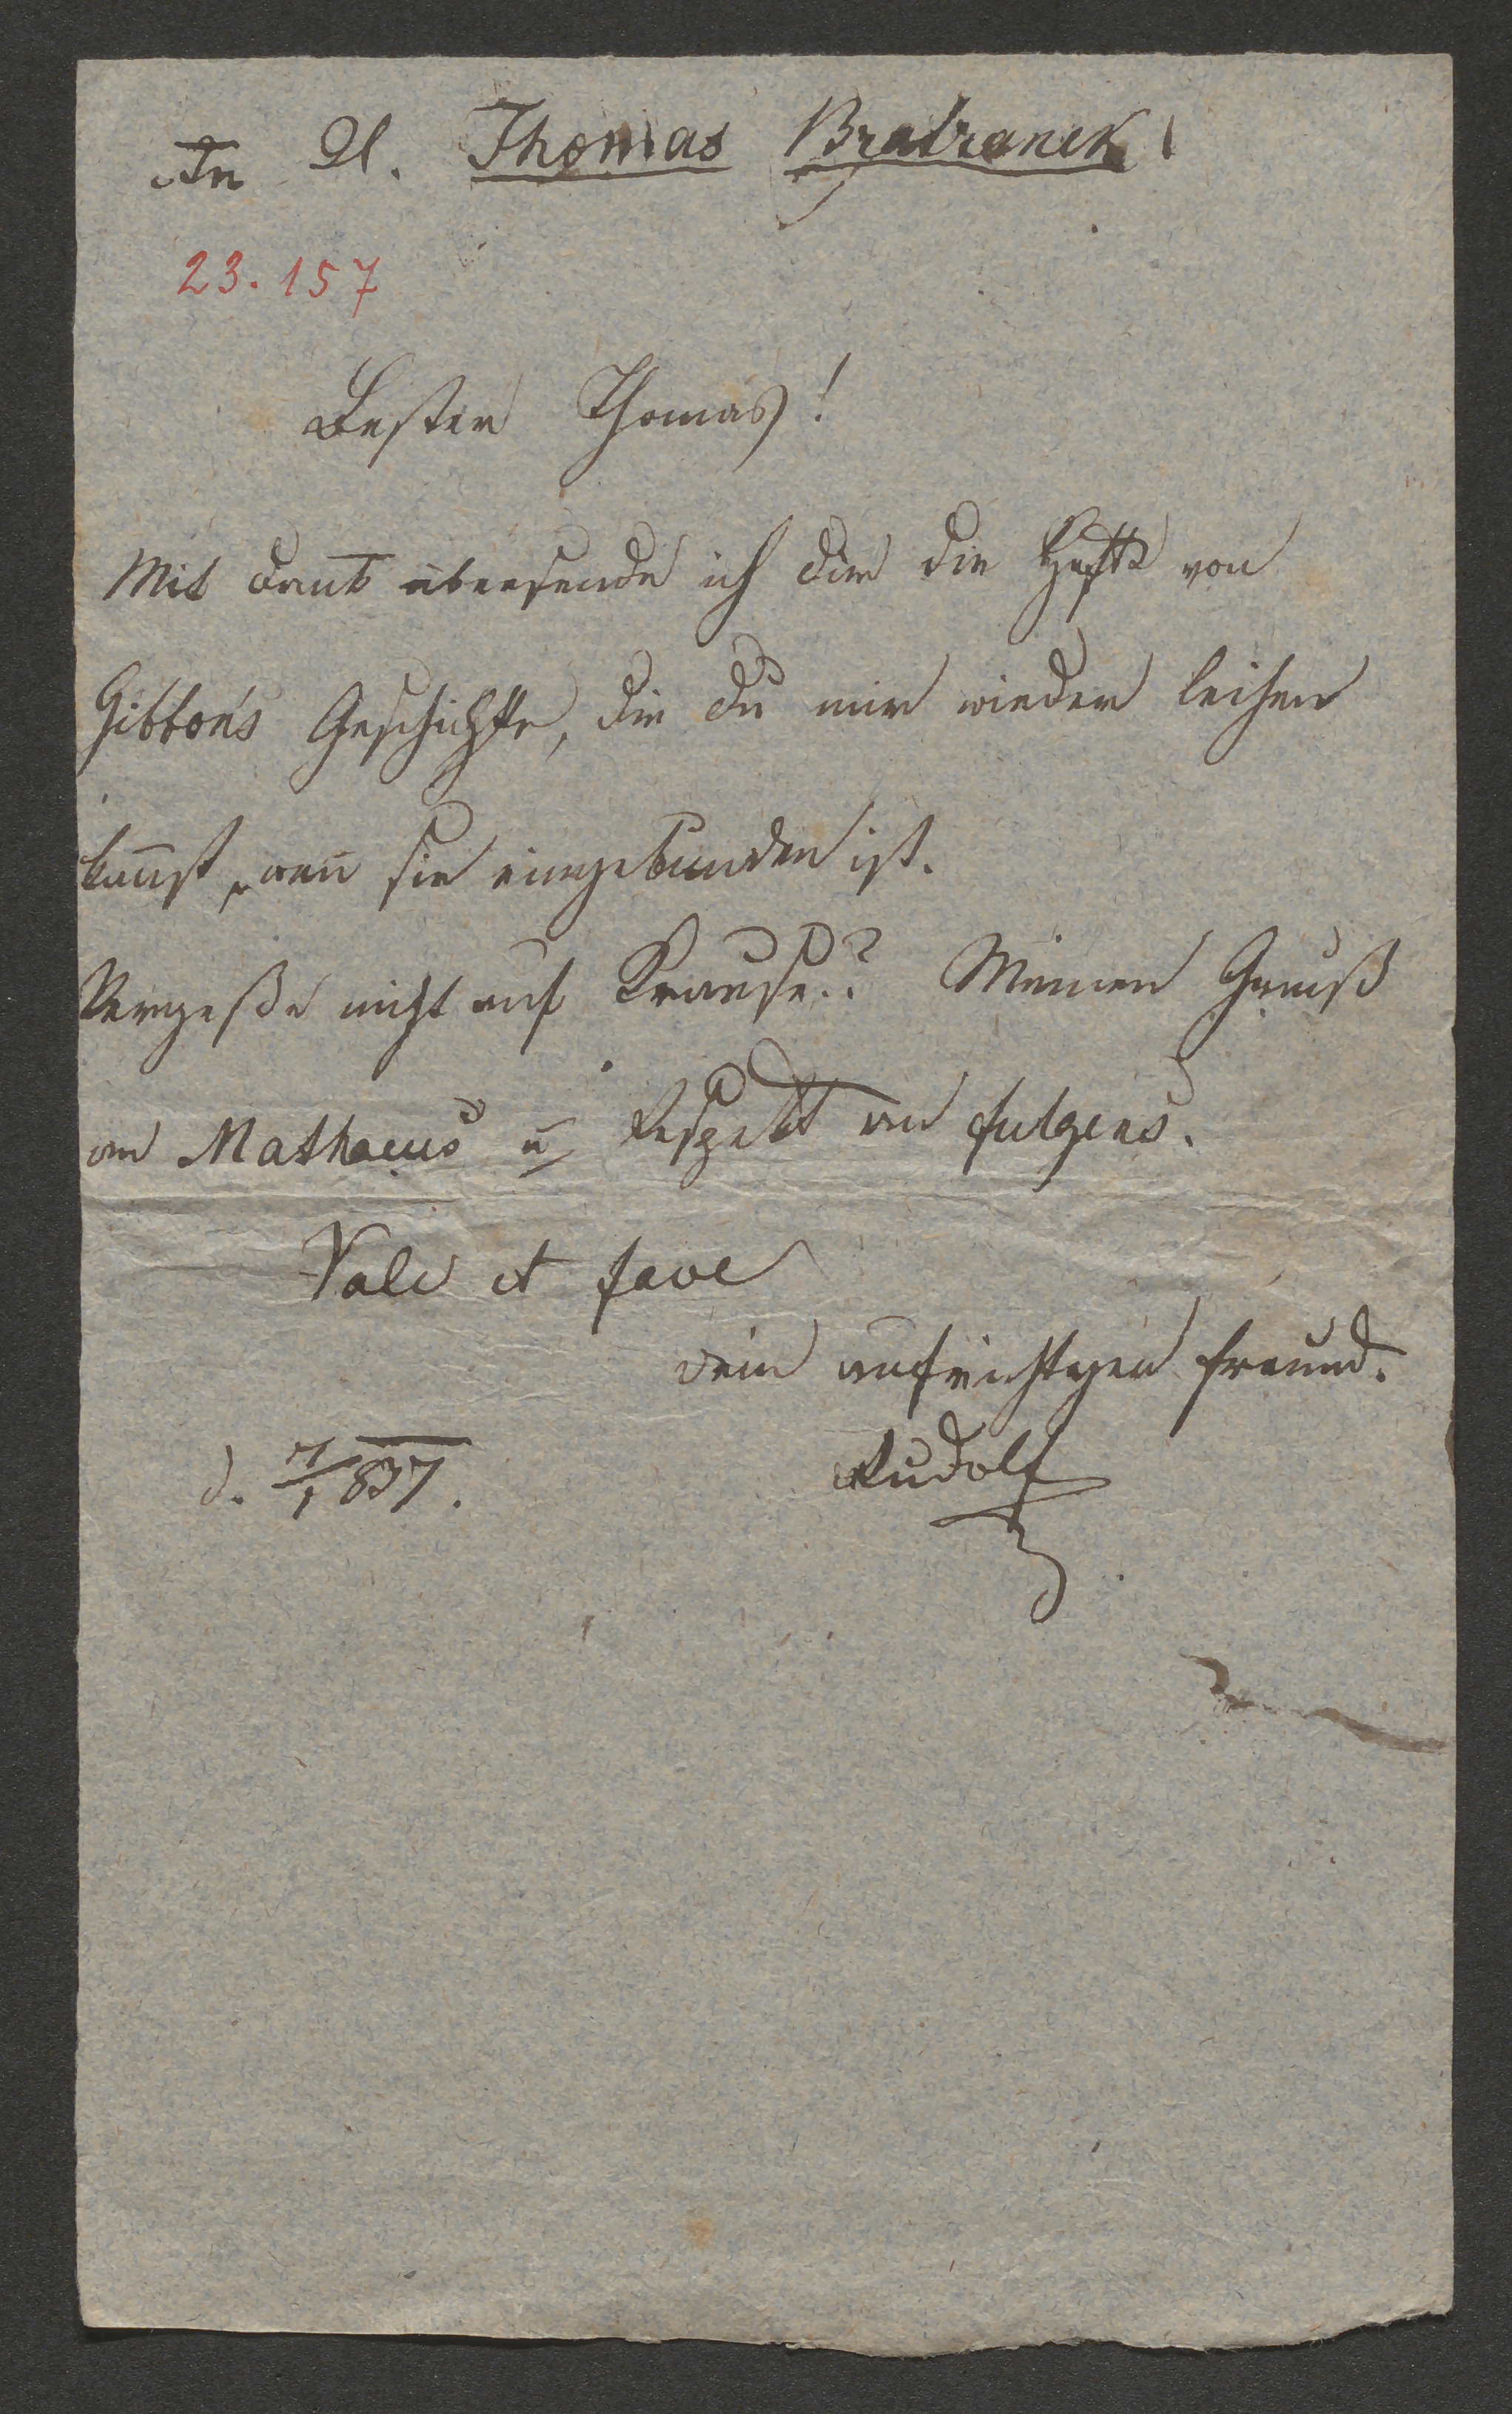 An A. Thomas Bratranek!
23.157
Bester Thomas!
Mit Dank übersende ich dir die Hefte von
Gibbon's Geschichte, die du mir wieder leihen
kan̄st, wen̄ sie eingebunden ist.
Vergesse nicht auf Krause!? Meinen Gruß
an Mathaeus u Respekt an fulgens.
Vale et fave
dein aufrichtiger Freund.
d. 7/1 837. Rudolf